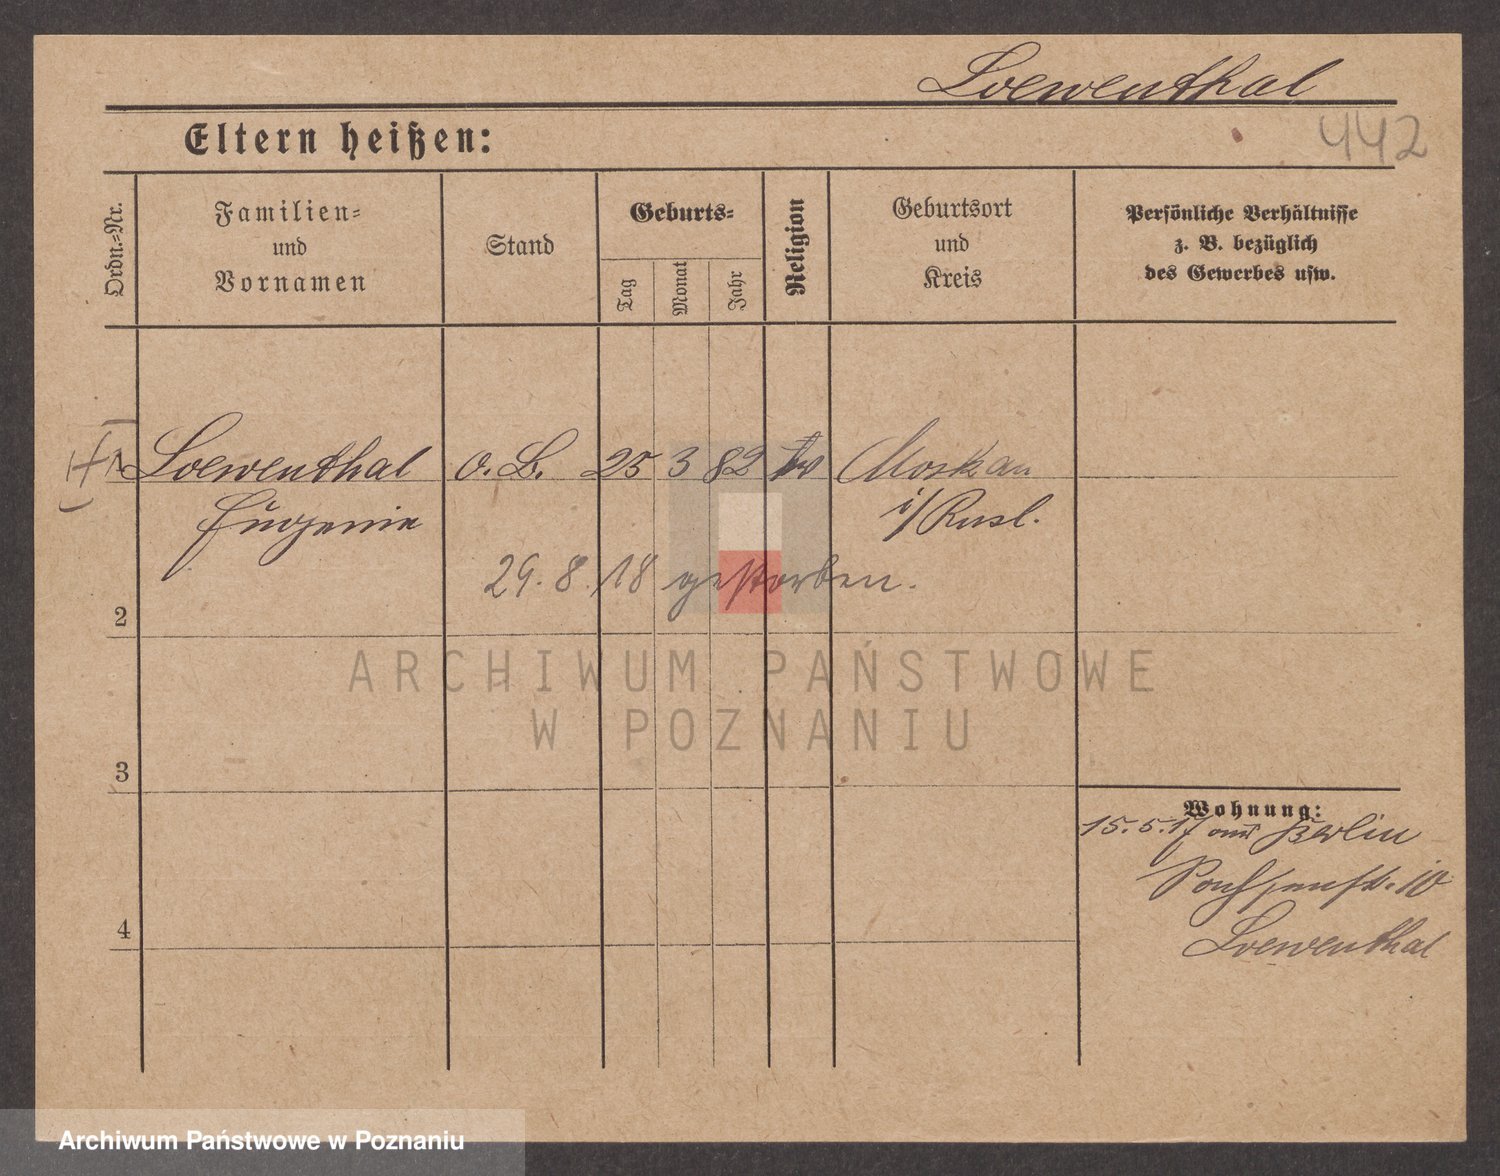 Loewenthal
442
Eltern heißen:
Ordn.-Nr.
Familien-
und
Vornamen
Stand
Geburts-
Tag
Monat
Jahr
Religion
Geburtsort
und
Kreis
Persönliche Verhältnisse
z. B. bezüglich
des Gewerbes usw.
1 Loewenthal o. B. 25 3 82 Moskau
Eugenie i/Russl.
29. 8. 18 gestorben.
2
3
4
Wohnung:
15. 5. 17 aus Berlin
10
Loewenthal
ARCHIWUM PAŃSTWOWE
W POZNANIU
Archiwum Państwowe w Poznaniu